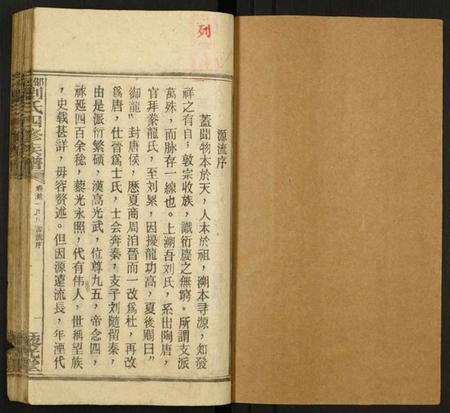 列
源流序
蓋聞物本於天，人本於祖，溯本尋源，知發
祥之有自；敦宗收族，識衍慶之無窮。所謂支派
萬殊，而脈存一線也。上溯吾刘氏，系出陶唐，
官拜豢龍氏，至刘累，因擾龍功高，夏後賜曰"
御龍"封唐侯，歷夏商周洎晉而一改爲杜，再改
爲唐，仕晉爲士氏，士会奔秦，支子刘隨留秦，
由是派衍繁碩，漢高光武，位尊九五，帝念四，
祚延四百余稔，藜光永照，代有偉人，世稱望族
，史载甚詳，毋容赘述。但因源遠流長，年湮代
刘氏四修族譜
源流序
一